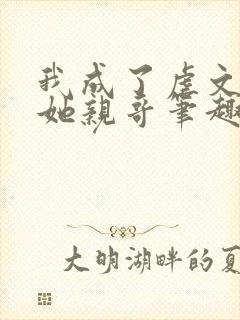 我成了虐文
她亲哥笔趣
大明湖畔的夏